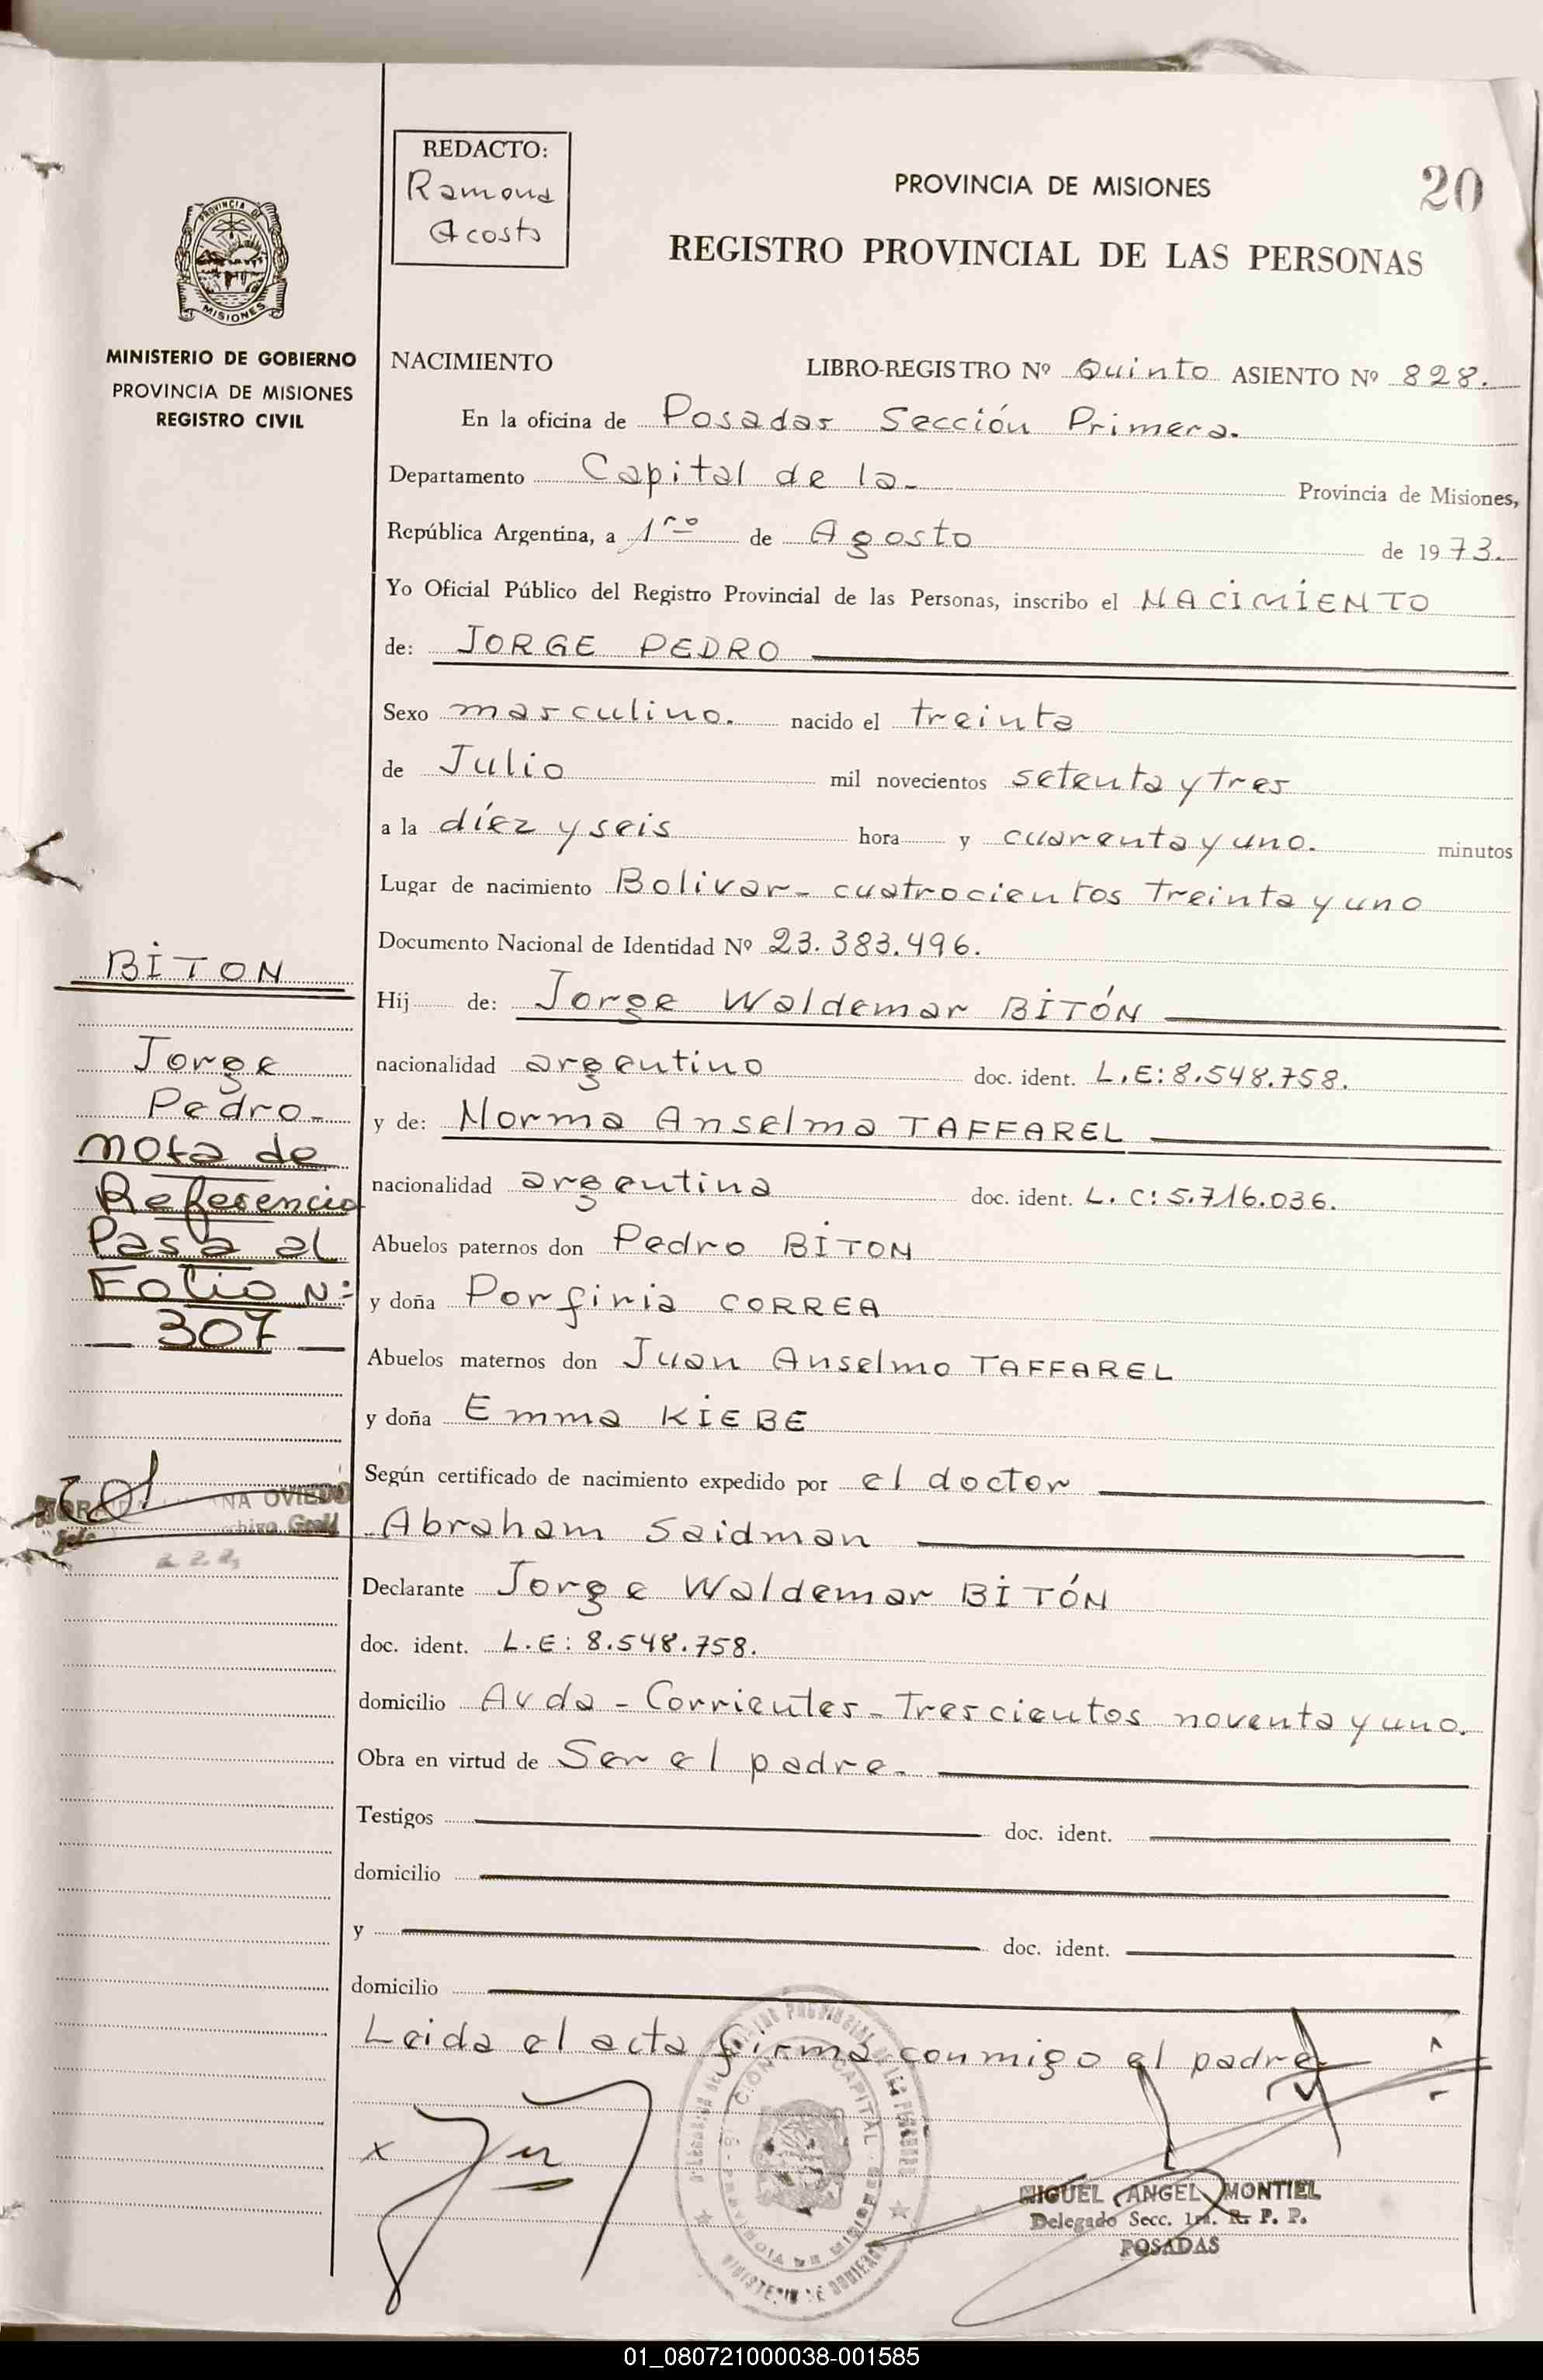 REDACTO:
Ramona
Acosta
PROVINCIA DE MISIONES
20
REGISTRO PROVINCIAL DE LAS PERSONAS
PROVINCIA DE
MISIONES
MINISTERIO DE GOBIERNO
PROVINCIA DE MISIONES
REGISTRO CIVIL
NACIMIENTO LIBRO-REGISTRO Nº Quinto ASIENTO Nº 828.
En la oficina de Posadas Sección Primera.
Departamento Capital de la- Provincia de Misiones,
República Argentina, a 1ro de Agosto de 1973.
Yo Oficial Público del Registro Provincial de las Personas, inscribo el NACIMIENTO
de: JORGE PEDRO
Sexo masculino. nacido el treinta
de Julio mil novecientos setenta y tres
a la díez y seis hora y cuarenta y uno. minutos
Lugar de nacimiento Bolivar- cuatrocientos treinta y uno
Documento Nacional de Identidad Nº 23.383.496.
Hij de: Jorge Waldemar BITÓN
nacionalidad argentino doc. ident. L.E: 8.548.758.
y de: Norma Anselma TAFFAREL
nacionalidad argentina doc. ident. L.C: 5.716.036.
Abuelos paternos don Pedro BITON
y doña Porfiria CORREA
Abuelos maternos don Juan Anselmo TAFFAREL
y doña Emma KIEBE
Según certificado de nacimiento expedido por el doctor
Abraham Saidman
Declarante Jorge Waldemar BITÓN
doc. ident. L.E: 8.548.758.
domicilio Avda - Corrientes - Trescientos noventa y uno.
Obra en virtud de Ser el padre.
Testigos doc. ident.
domicilio
y doc. ident.
domicilio
Leida el acta firma conmigo el padre
x
MIGUEL ANGEL MONTIEL
Delegado Secc. 1ra. R. P. P.
POSADAS
BITON
Jorge
Pedro-
Nota de
Referencia
Pasa al
Folio Nº
307
OVIEDO
01_080721000038-001585